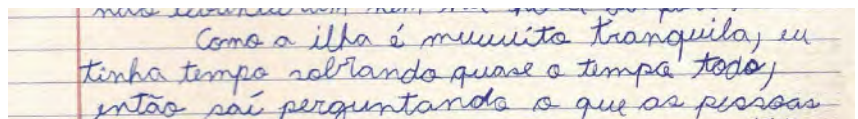 Como a ilha é muuuito tranquila, eu
tinha tempo sobrando quase o tempo todo,
então saí perguntando o que as pessoas